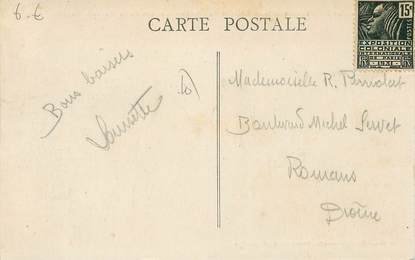 6.€
CARTE POSTALE
15c
EXPOSITION
COLONIALE
INTERNATIONALE
PARIS 1931
Bons baisers
Mademoiselle R.
Boulevard Michel Servet
Romans
Drôme